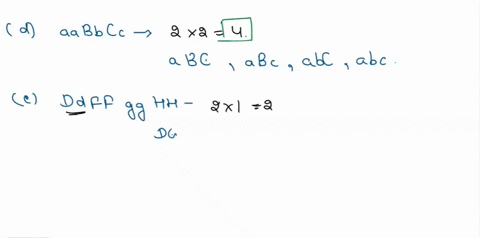 (d) aaBbCc → 2 × 2 = 4.
aBC , aBc , abC , abc .
(e) DdFF gg HH - 2 × 1 = 2
DG